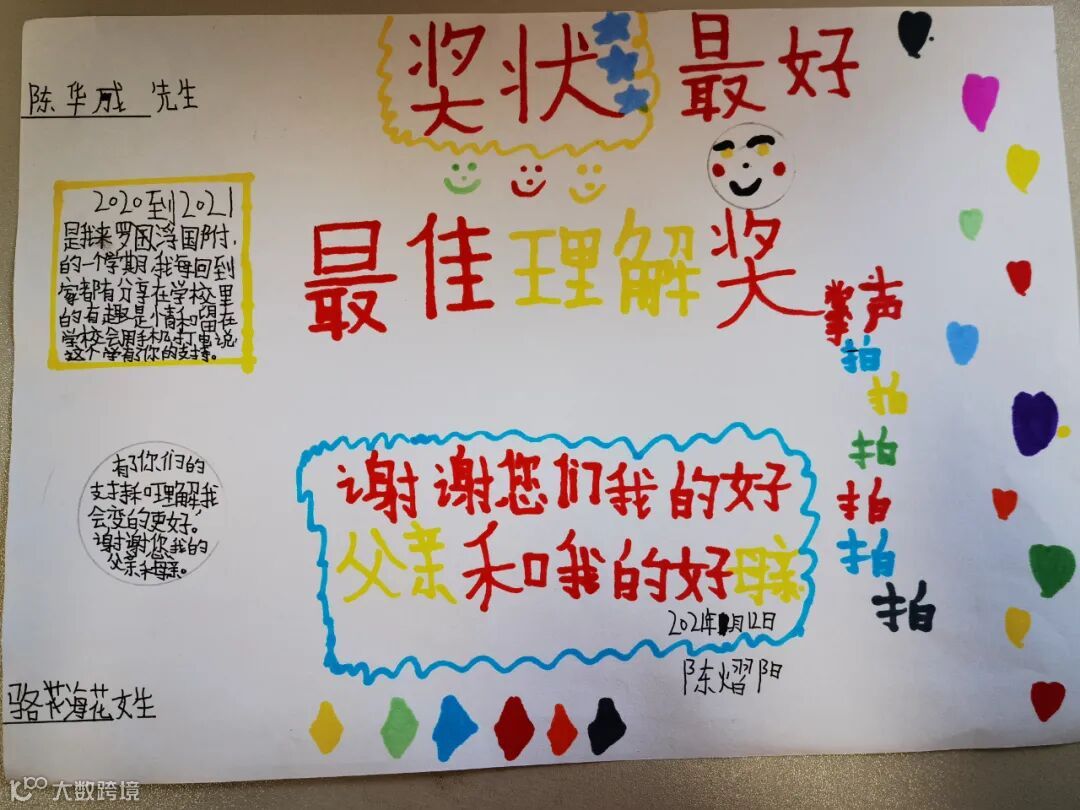 奖状 最好
陈华威 先生
最佳理解奖
2020到2021
是我来罗因浮国附,
的一个学期,我每回到
家都有分享在学校里
的有趣是情和留在
学校会用手机打电说
这个学有你的支持。
掌声
拍
拍
拍
拍
拍
拍
有了你们的
支持和理解,我
会变的更好,
谢谢您我的
父亲和母亲。
谢谢您们我的好
父亲和我的好母亲
2021年1月12日
陈熠阳
骆花海花女生
大数跨境